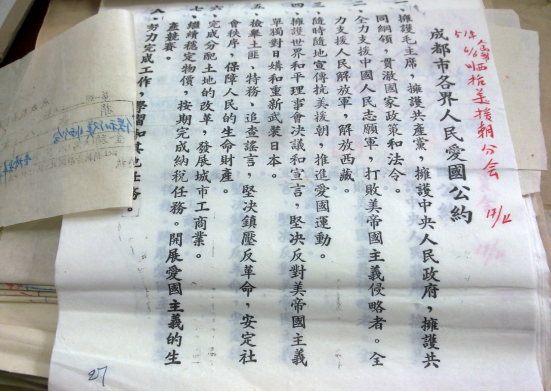 抗美援朝分会
成都市各界人民愛國公約
一、擁護毛主席,擁護共產黨,擁護中央人民政府,擁護共
同綱領,貫澈國家政策和法令。
二、全力支援中國人民志願軍,打敗美帝國主義侵略者。全
力支援人民解放軍,解放西藏。
三、隨時隨地宣傳抗美援朝,推進愛國運動。
四、擁護世界和平理事會決議和宣言,堅决反對美帝國主義
單獨對日媾和重新武裝日本。
五、檢舉土匪,特務,追查謠言,堅决鎮壓反革命,安定社
會秩序,保障人民的生命財產。
六、完成分配土地的改革,發展城市工商業。
七、繼續穩定物價,按期完成納稅任務。開展愛國主義的生
產競賽。
八、努力完成工作,學習和其他任務。
27